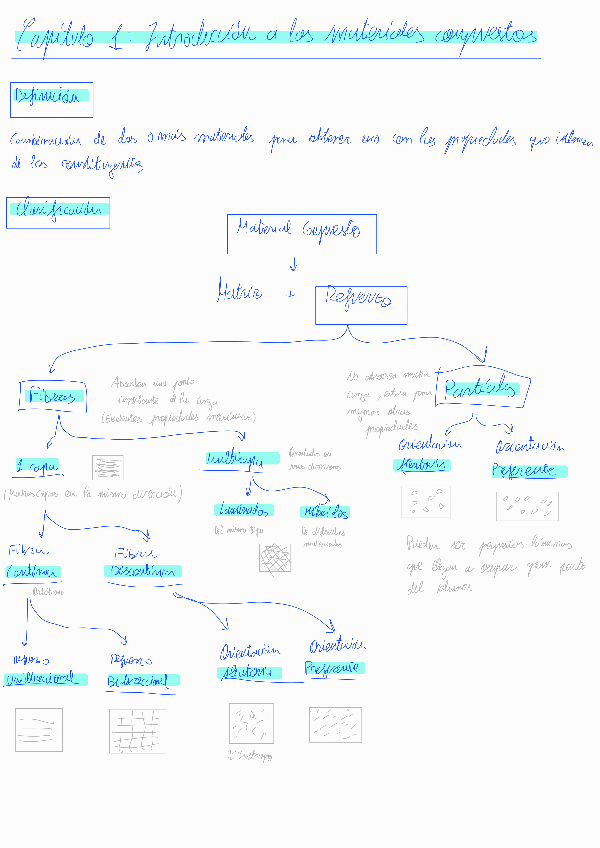 Capítulo 1: Introducción a los materiales compuestos
Definición
Combinación de dos o más materiales para obtener uno con las propiedades
de los constituyentes
Clasificación
Material Compuesto
Matriz + Refuerzo
Fibras
Absorben una parte
importante de la carga
(Excelentes propiedades mecánicas)
No absorben mucha
carga, sirven para
mejorar otras
propiedades
Partículas
1 capa
(Monocapas en la misma dirección)
Multicapa
Orientados en
varias direcciones
Laminados
Del mismo tipo
Híbridos
De diferentes
materiales
Orientación
Aleatoria
Orientación
Preferente
Pueden ser pequeñas láminas
que llegan a ocupar gran parte
del volumen
Fibra
Continua
Fibra
Discontinua
Refuerzo
Unidireccional
Refuerzo
Bidireccional
Orientación
Aleatoria
Orientación
Preferente